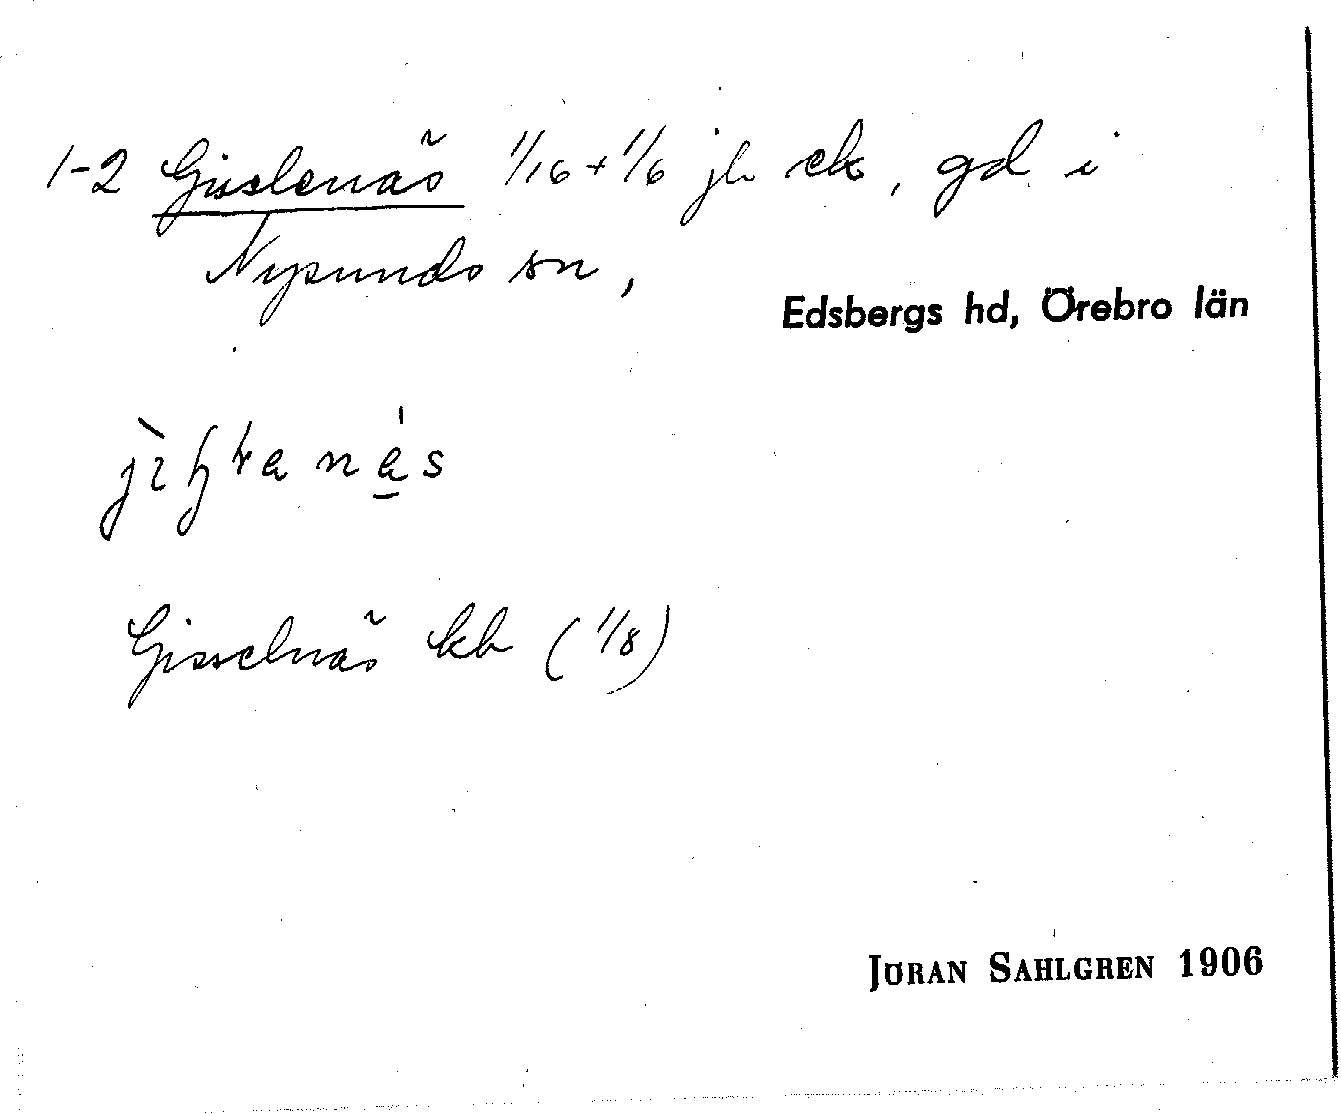 1-2 Gisslenäs 1/16 + 1/6 jb ek, gd i
Nysunds sn,
Edsbergs hd, Örebro län
Gisselnäs kb (1/8)
JÖRAN SAHLGREN 1906